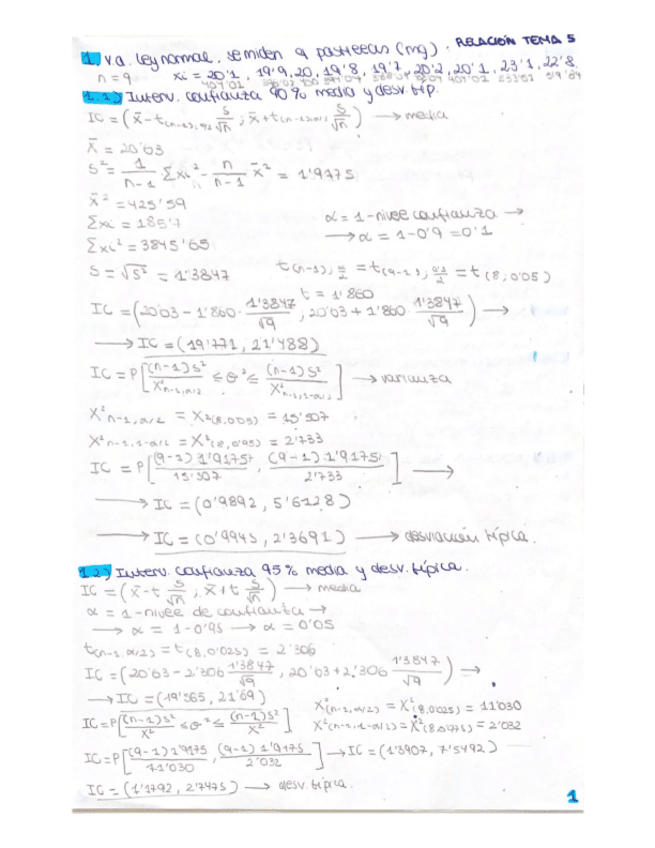 RELACIÓN TEMA 5
1. v.a. ley normal. se miden 9 pastillas (mg).
n = 9 xi = 20'1, 19'9, 20, 19'8, 19'7, 20'2, 20'1, 23'1, 22'8.
1.1) Interv. confianza 90% media y desv. típ.
IC = (x̄ - t(n-1), α/2 S/√n ; x̄ + t(n-1), α/2 S/√n) → media
x̄ = 20'63
S² = 1/n-1 · Σxi² - n/n-1 x̄² = 1'9175
x̄² = 425'59
Σxi = 185'7
α = 1 - nivel confianza →
Σxi² = 3845'65
→ α = 1 - 0'9 = 0'1
S = √S² = 1'3847
t(n-1), α/2 = t(9-1), 0'1/2 = t(8; 0'05)
t = 1'860
IC = (20'63 - 1'860 · 1'3847/√9, 20'63 + 1'860 1'3847/√9) →
→ IC = (19'771, 21'488)
IC = P[(n-1)S²/X²n-1, α/2 ≤ σ² ≤ (n-1)S²/X²n-1, 1-α/2] → varianza
X²n-1, α/2 = X²(8, 0'05) = 15'507
X²n-1, 1-α/2 = X²(8, 0'95) = 2'733
IC = P[(9-1) 1'9175/15'507, (9-1) 1'9175/2'733] →
→ IC = (0'9892, 5'6128)
→ IC = (0'9945, 2'3691) → desviación típica.
1.2) Interv. confianza 95% media y desv. típica.
IC = (x̄ - t S/√n ; x̄ + t S/√n) → media
α = 1 - nivel de confianza →
→ α = 1 - 0'95 → α = 0'05
t(n-1, α/2) = t(8, 0'025) = 2'306
IC = (20'63 - 2'306 1'3847/√9, 20'63 + 2'306 1'3847/√9) →
→ IC = (19'565, 21'69)
X²(n-1, α/2) = X²(8, 0'025) = 11'030
IC = P[(n-1)S²/X² ≤ σ² ≤ (n-1)S²/X²]
X²(n-1, 1-α/2) = X²(8, 0'975) = 2'032
IC = P[(9-1) 1'9175/11'030, (9-1) 1'9175/2'032] → IC = (1'3907, 7'5492)
IC = (1'1792, 2'7475) → desv. típica.
1